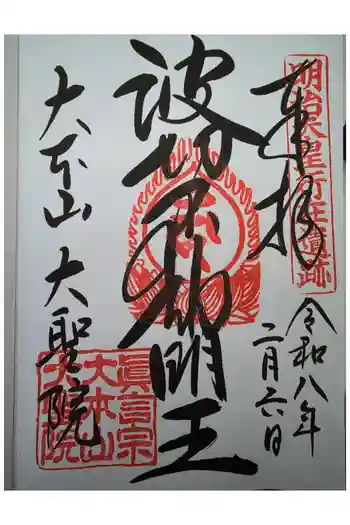 明治天皇行在遺跡
奉拝
令和八年
二月六日
波切不動明王
大本山 大聖院
眞言宗
大本山
大聖院